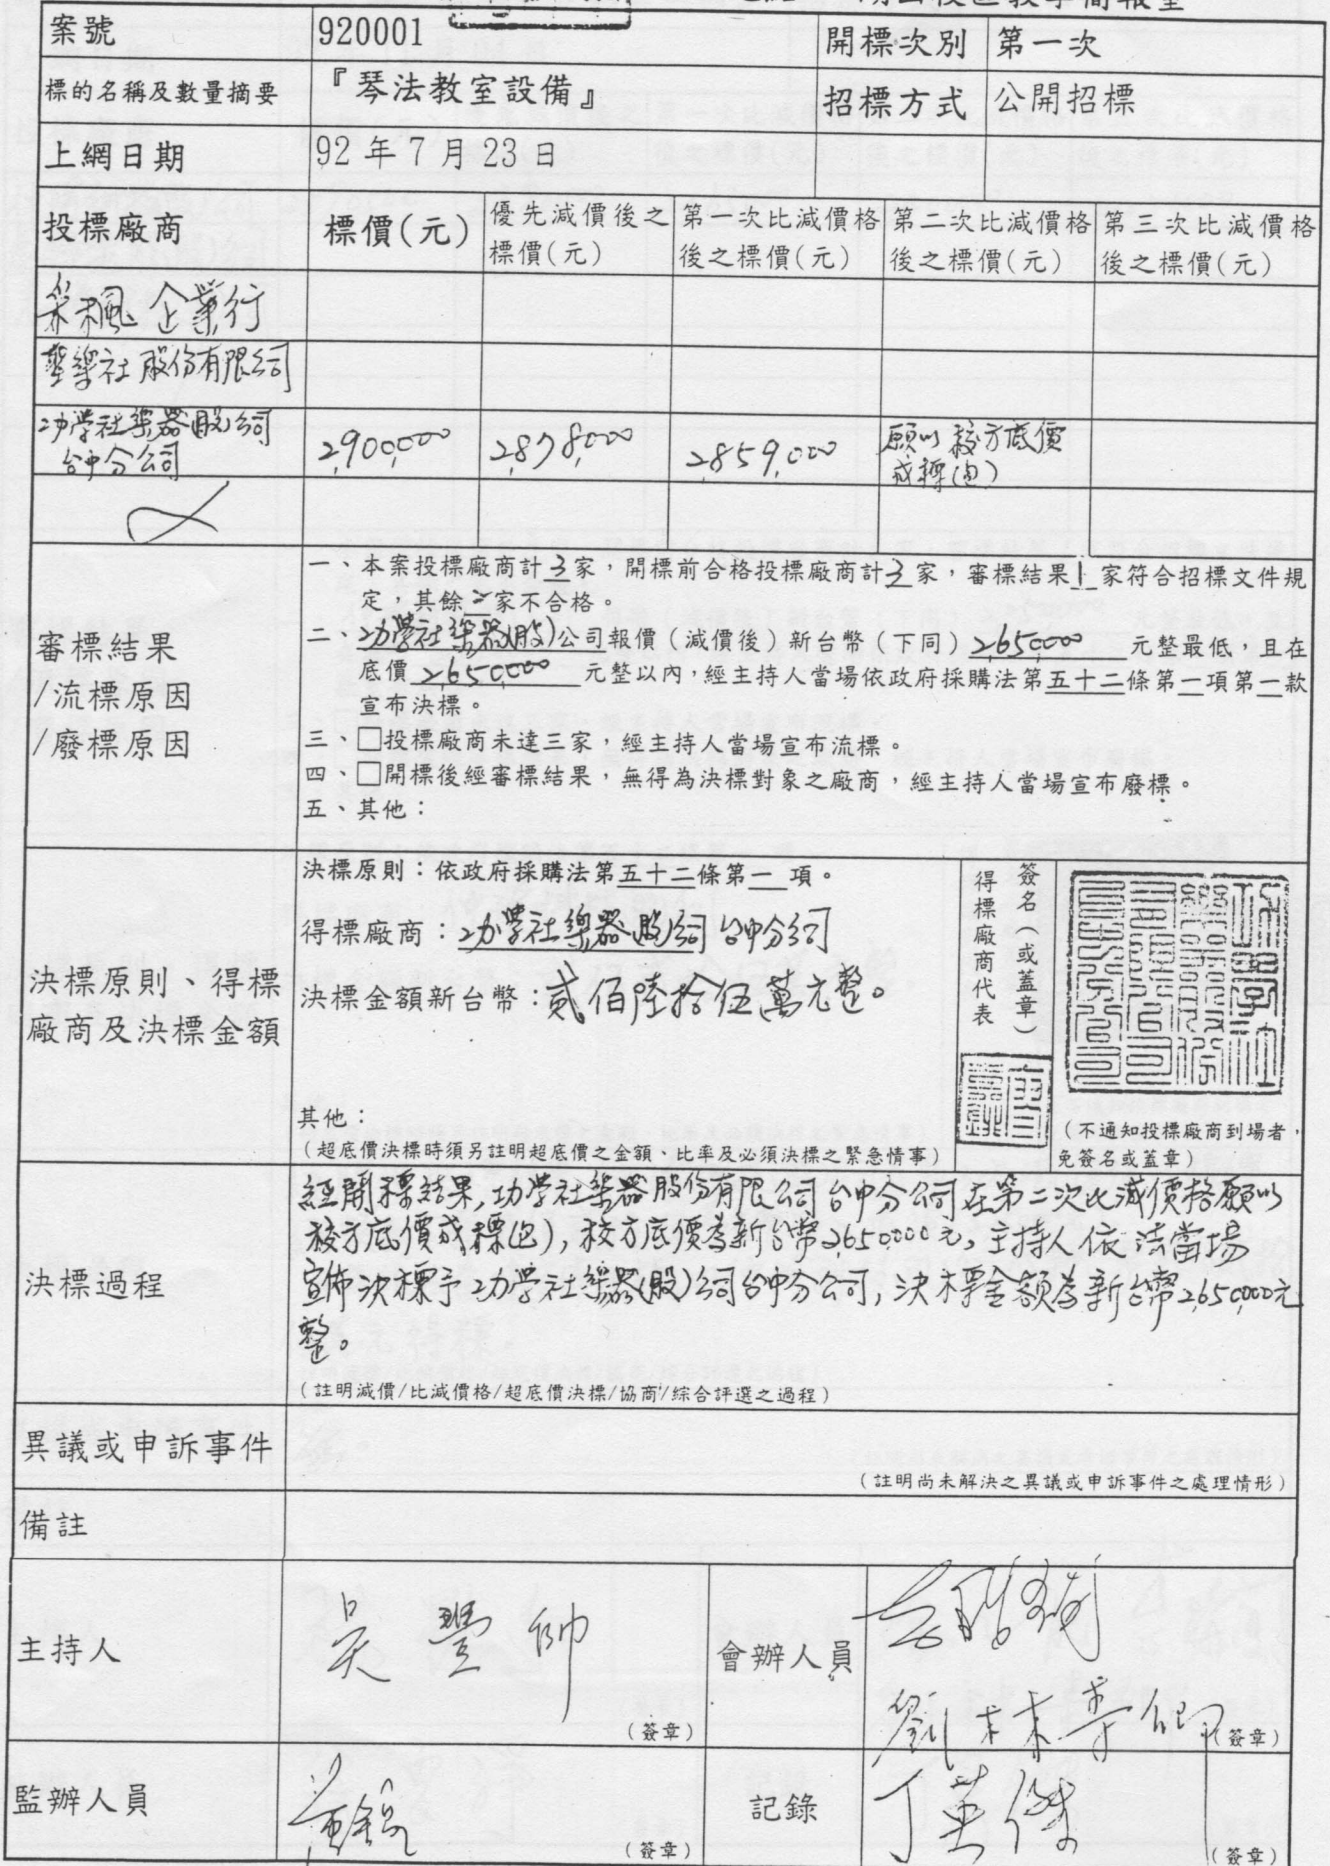 案號 920001 開標次別 第一次
標的名稱及數量摘要 『琴法教室設備』 招標方式 公開招標
上網日期 92 年 7 月 23 日
投標廠商 標價(元) 優先減價後之標價(元) 第一次比減價格後之標價(元) 第二次比減價格後之標價(元) 第三次比減價格後之標價(元)
采楓企業行
聲樂社股份有限公司
功學社樂器(股)公司
台中分公司 2,900,000 2,878,000 2,859,000 願以校方底價
成標(包)
一、本案投標廠商計3家，開標前合格投標廠商計3家，審標結果1家符合招標文件規
定，其餘2家不合格。
二、功學社樂器(股)公司報價（減價後）新台幣（下同）2,650,000元整最低，且在
底價2,650,000元整以內，經主持人當場依政府採購法第五十二條第一項第一款
宣布決標。
審標結果
/流標原因
/廢標原因
三、□投標廠商未達三家，經主持人當場宣布流標。
四、□開標後經審標結果，無得為決標對象之廠商，經主持人當場宣布廢標。
五、其他：
決標原則、得標
廠商及決標金額
決標原則：依政府採購法第五十二條第一項。
得標廠商：功學社樂器(股)公司台中分公司
決標金額新台幣：貳佰陸拾伍萬元整。
其他：
（超底價決標時須另註明超底價之金額、比率及必須決標之緊急情事）
得標廠商代表
簽名（或蓋章）
（不通知投標廠商到場者，
免簽名或蓋章）
決標過程
經開標結果，功學社樂器股份有限公司台中分公司在第二次比減價格願以
校方底價成標(包)，校方底價為新台幣2,650,000元，主持人依法當場
宣佈決標予功學社樂器(股)公司台中分公司，決標金額為新台幣2,650,000元
整。
（註明減價/比減價格/超底價決標/協商/綜合評選之過程）
異議或申訴事件
（註明尚未解決之異議或申訴事件之處理情形）
備註
主持人 吳豐帥 （簽章） 會辦人員 （簽章）
監辦人員 （簽章） 記錄 丁英傑 （簽章）